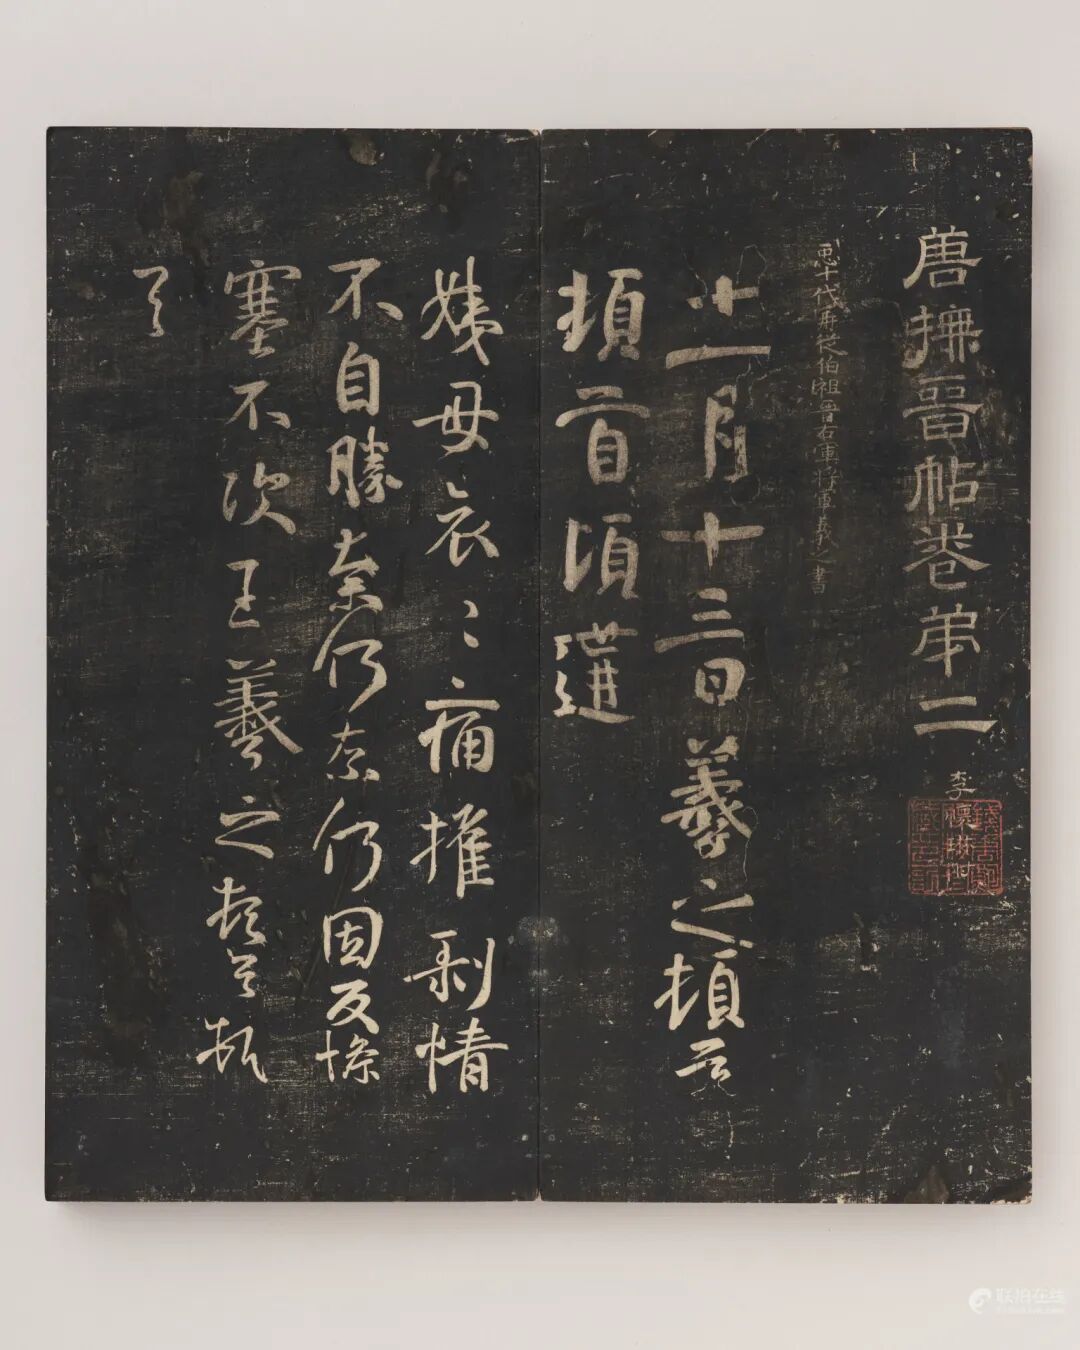 唐撫晉帖卷弟二
李懷琳附
臣十代再從伯祖晉右軍將軍羲之書
十一月十三日羲之頓首
頓首頃遘
姨母哀〻痛摧剝情
不自勝奈何奈何因反慘
塞不次王羲之頓首頓
首
联拍在线